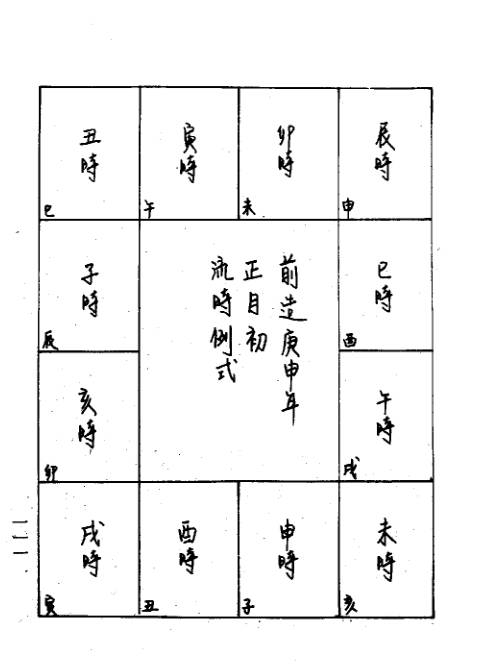 丑時
巳
寅時
午
卯時
未
辰時
申
子時
辰
前造庚申年
正月初
流時例式
巳時
酉
亥時
卯
午時
戌
戌時
寅
酉時
丑
申時
子
未時
亥
一一一